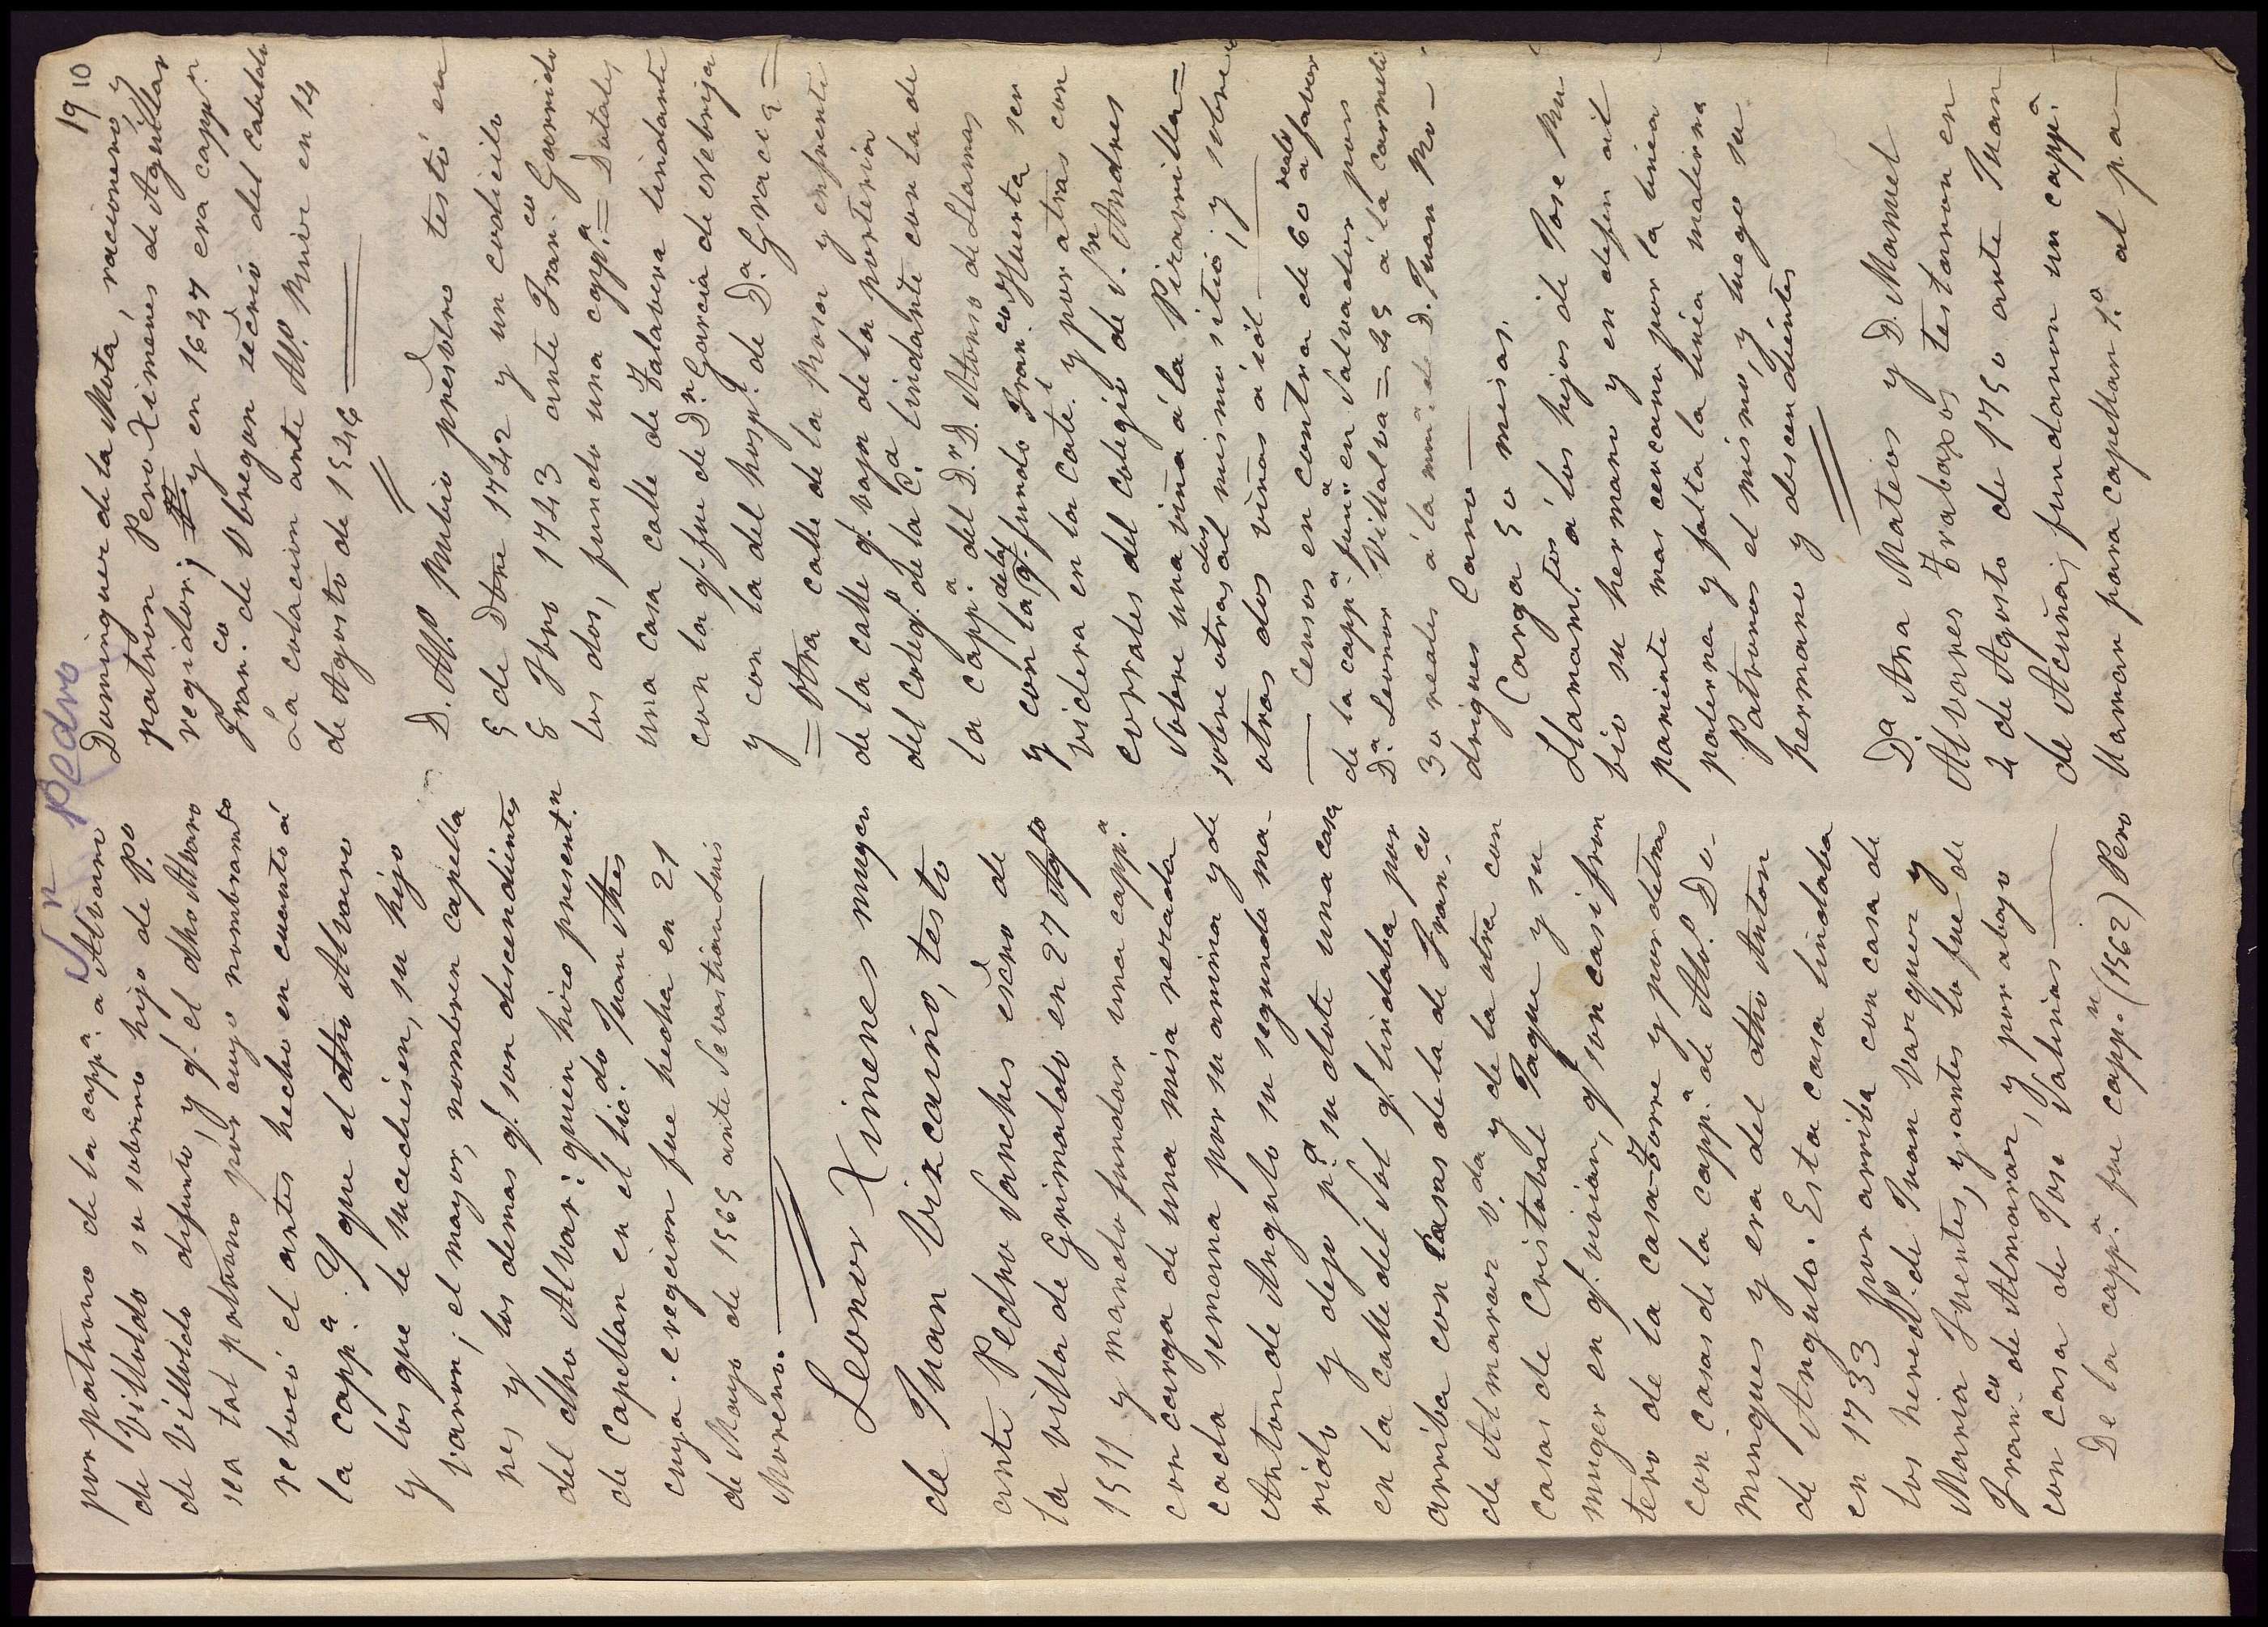 Sn Pedro
19 10
por patrono de la cappa. á Alvaro
de Villodo su sobrino hijo de Po
de Villodo difunto, y q. el dho Alvaro
sea tal patrono por cuyo nombramto
revocó el antes hecho en cuanto á
la cappa. Y que el dho Alvaro
y los que le sucediesen, su hijo
varon, el mayor, nombren capella
nes y los demas q. son descendientes
del dho Alvar: quien hizo presentn
de Capellan en el licdo. Juan
cuya eregcion fue hecha en 21
de Mayo de 1565 ante Sevastian Luis
Moreno.
Leonor Ximenes muger
de Juan Vizcaino, testó
ante Pedro Sanches escno de
la villa de Grimaldo en 27 Agto
1511 y mando fundar una cappa.
con carga de una misa rezada
cada semana por su anima y de
Anton de Angulo su segundo ma-
rido y dejo pa. su dote una casa
en la calle del Sol q. lindaba por
arriba con casas de la de Franco.
de Almaraz vda y de la otra con
casas de Cristobal Jaque y su
muger en q. vivian, q. son casi fron
tero de la casa-Torre y por detras
con casas de la cappa. de Alo. Do-
mingues y era del dho Anton
de Angulo. Esta casa lindaba
en 1733 por arriba con casa de
los hereds. de Juan Vazquez y
Maria Fuentes, y antes lo fue de
Franco de Almaraz, y por abajo
con casa de Jose Salinas
De la cappa. fue cappn. (1562) Pero
Dominguez de la Mota, racionero, y
patron Pero Ximenes de Aguilar
regidor; y en 1627 era cappn
Franco. de Obregon secrio del cabildo
La colacion ante Alo. Ruiz en 14
de Agosto de 1546
D. Alo. Rubio presvtro testó en
5 de Dbre 1742 y un codicilo
8 Fbro 1743 ante Franco. Garrido
los dos, fundo una cappa. = Dotole,
una casa calle de Talavera lindante
con la q. fue de Dn. Garcia de Lebrija
y con la del hospl. de Da. Gracia =
= Otra calle de la Rosa y enfrente
de la calle q. baja de la porteria
del colego. de la Ca. lindante con la de
la cappa. del Dr. D. Alonso de Llamas
y con la de las q. fundo Franco. Huerta ser
videra en la Cate. y por atras con
corrales del Colegio de Sn. Andres
Sobre una viña á la Piramilla =
sobre otras dos al mismo sitio; y sobre
otras dos viñas a idl —
— Censos en contra de 60 reals a favor
de la cappa. funda. en Salvador por
Da. Leonor Villalva = 25 á la Carmeli
30 reales á la mema. de D. Juan Ro-
drigues Cano —
Carga 50 misas.
Llamamtos á los hijos de Jose Ru
bio su hermano y en defin al
pariente mas cercano por la linea
paterna y falta la linea materna
Patronos el mismo, y luego su
hermano y descendientes
Da. Ana Mateos y D. Manuel
Alvares Trabaxos testaron en
4 de Agosto de 1750 ante Juan
de Acuña; fundaron un cappa.
llaman para capellan 1o. al pa-